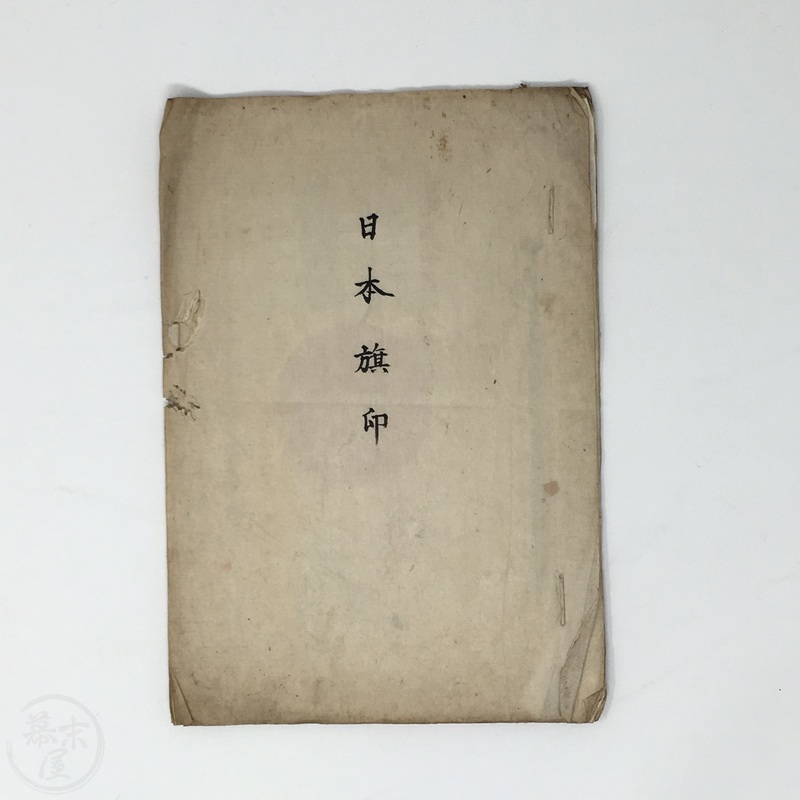 日本旗印
幕末屋